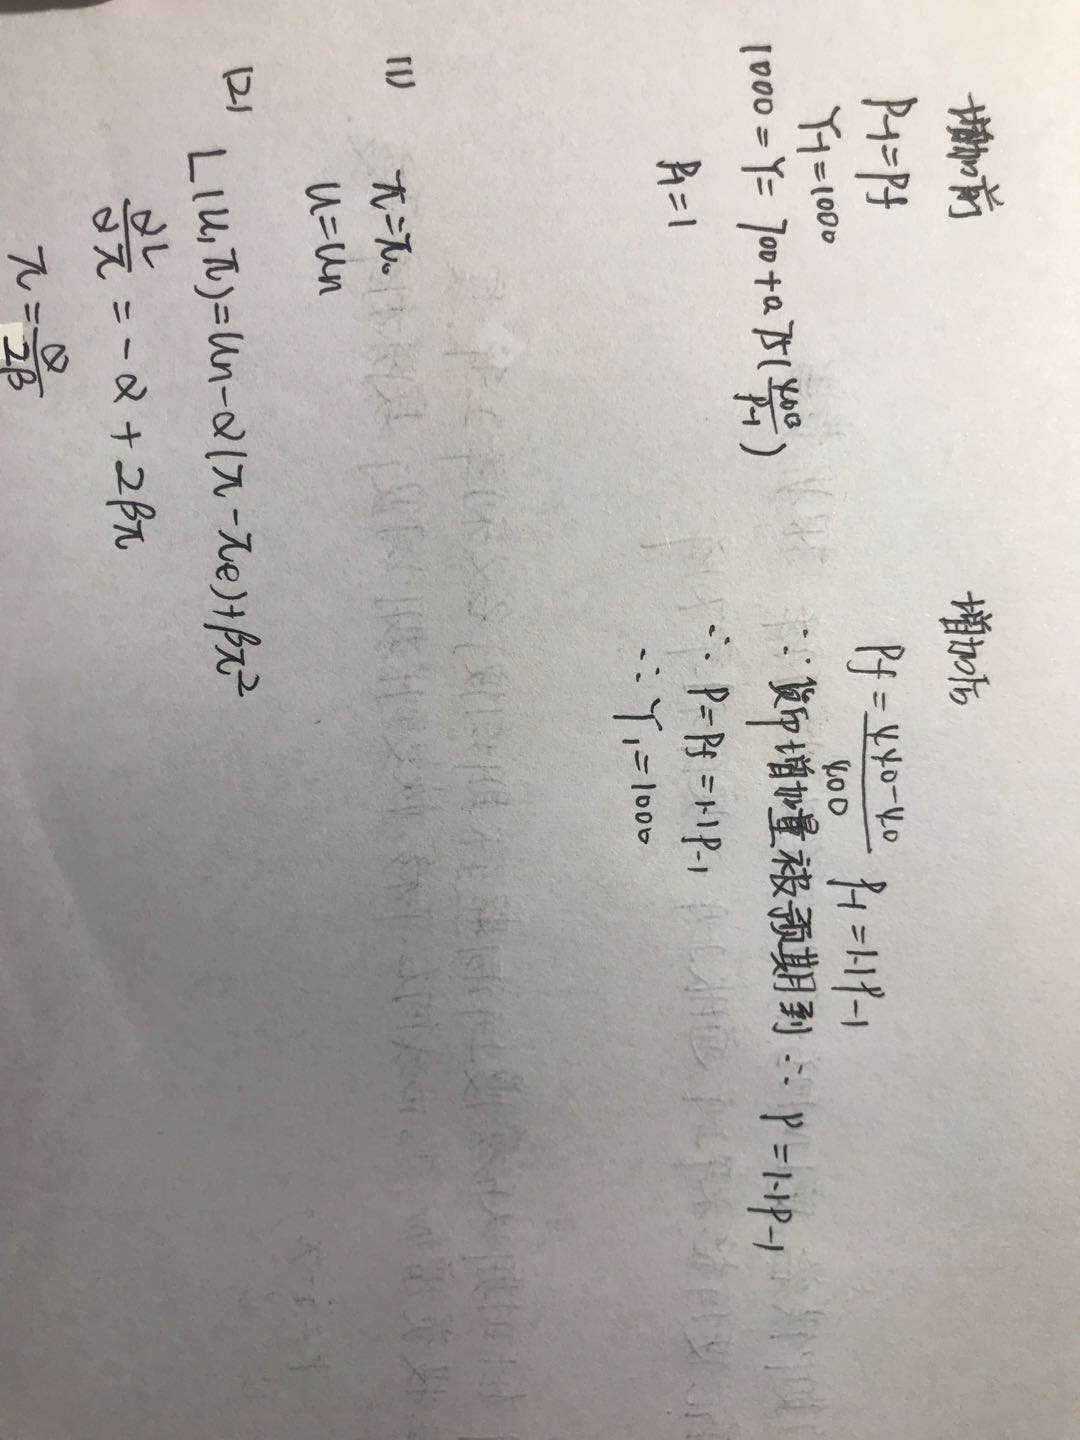 增加前
P-1=Pf
Y-1=1000
1000=Y=700+0.75(400/P-1)
P-1=1
增加后
Pf=(440-40)/400 P-1=1.1P-1
∵货币增加量被预期到∴P=1.1P-1
∴P=Pf=1.1P-1
∴Y1=1000
(1) π=π0
u=un
(2) L(u,π)=un-α(π-πe)+βπ²
∂L/∂π=-α+2βπ
π=α/2β